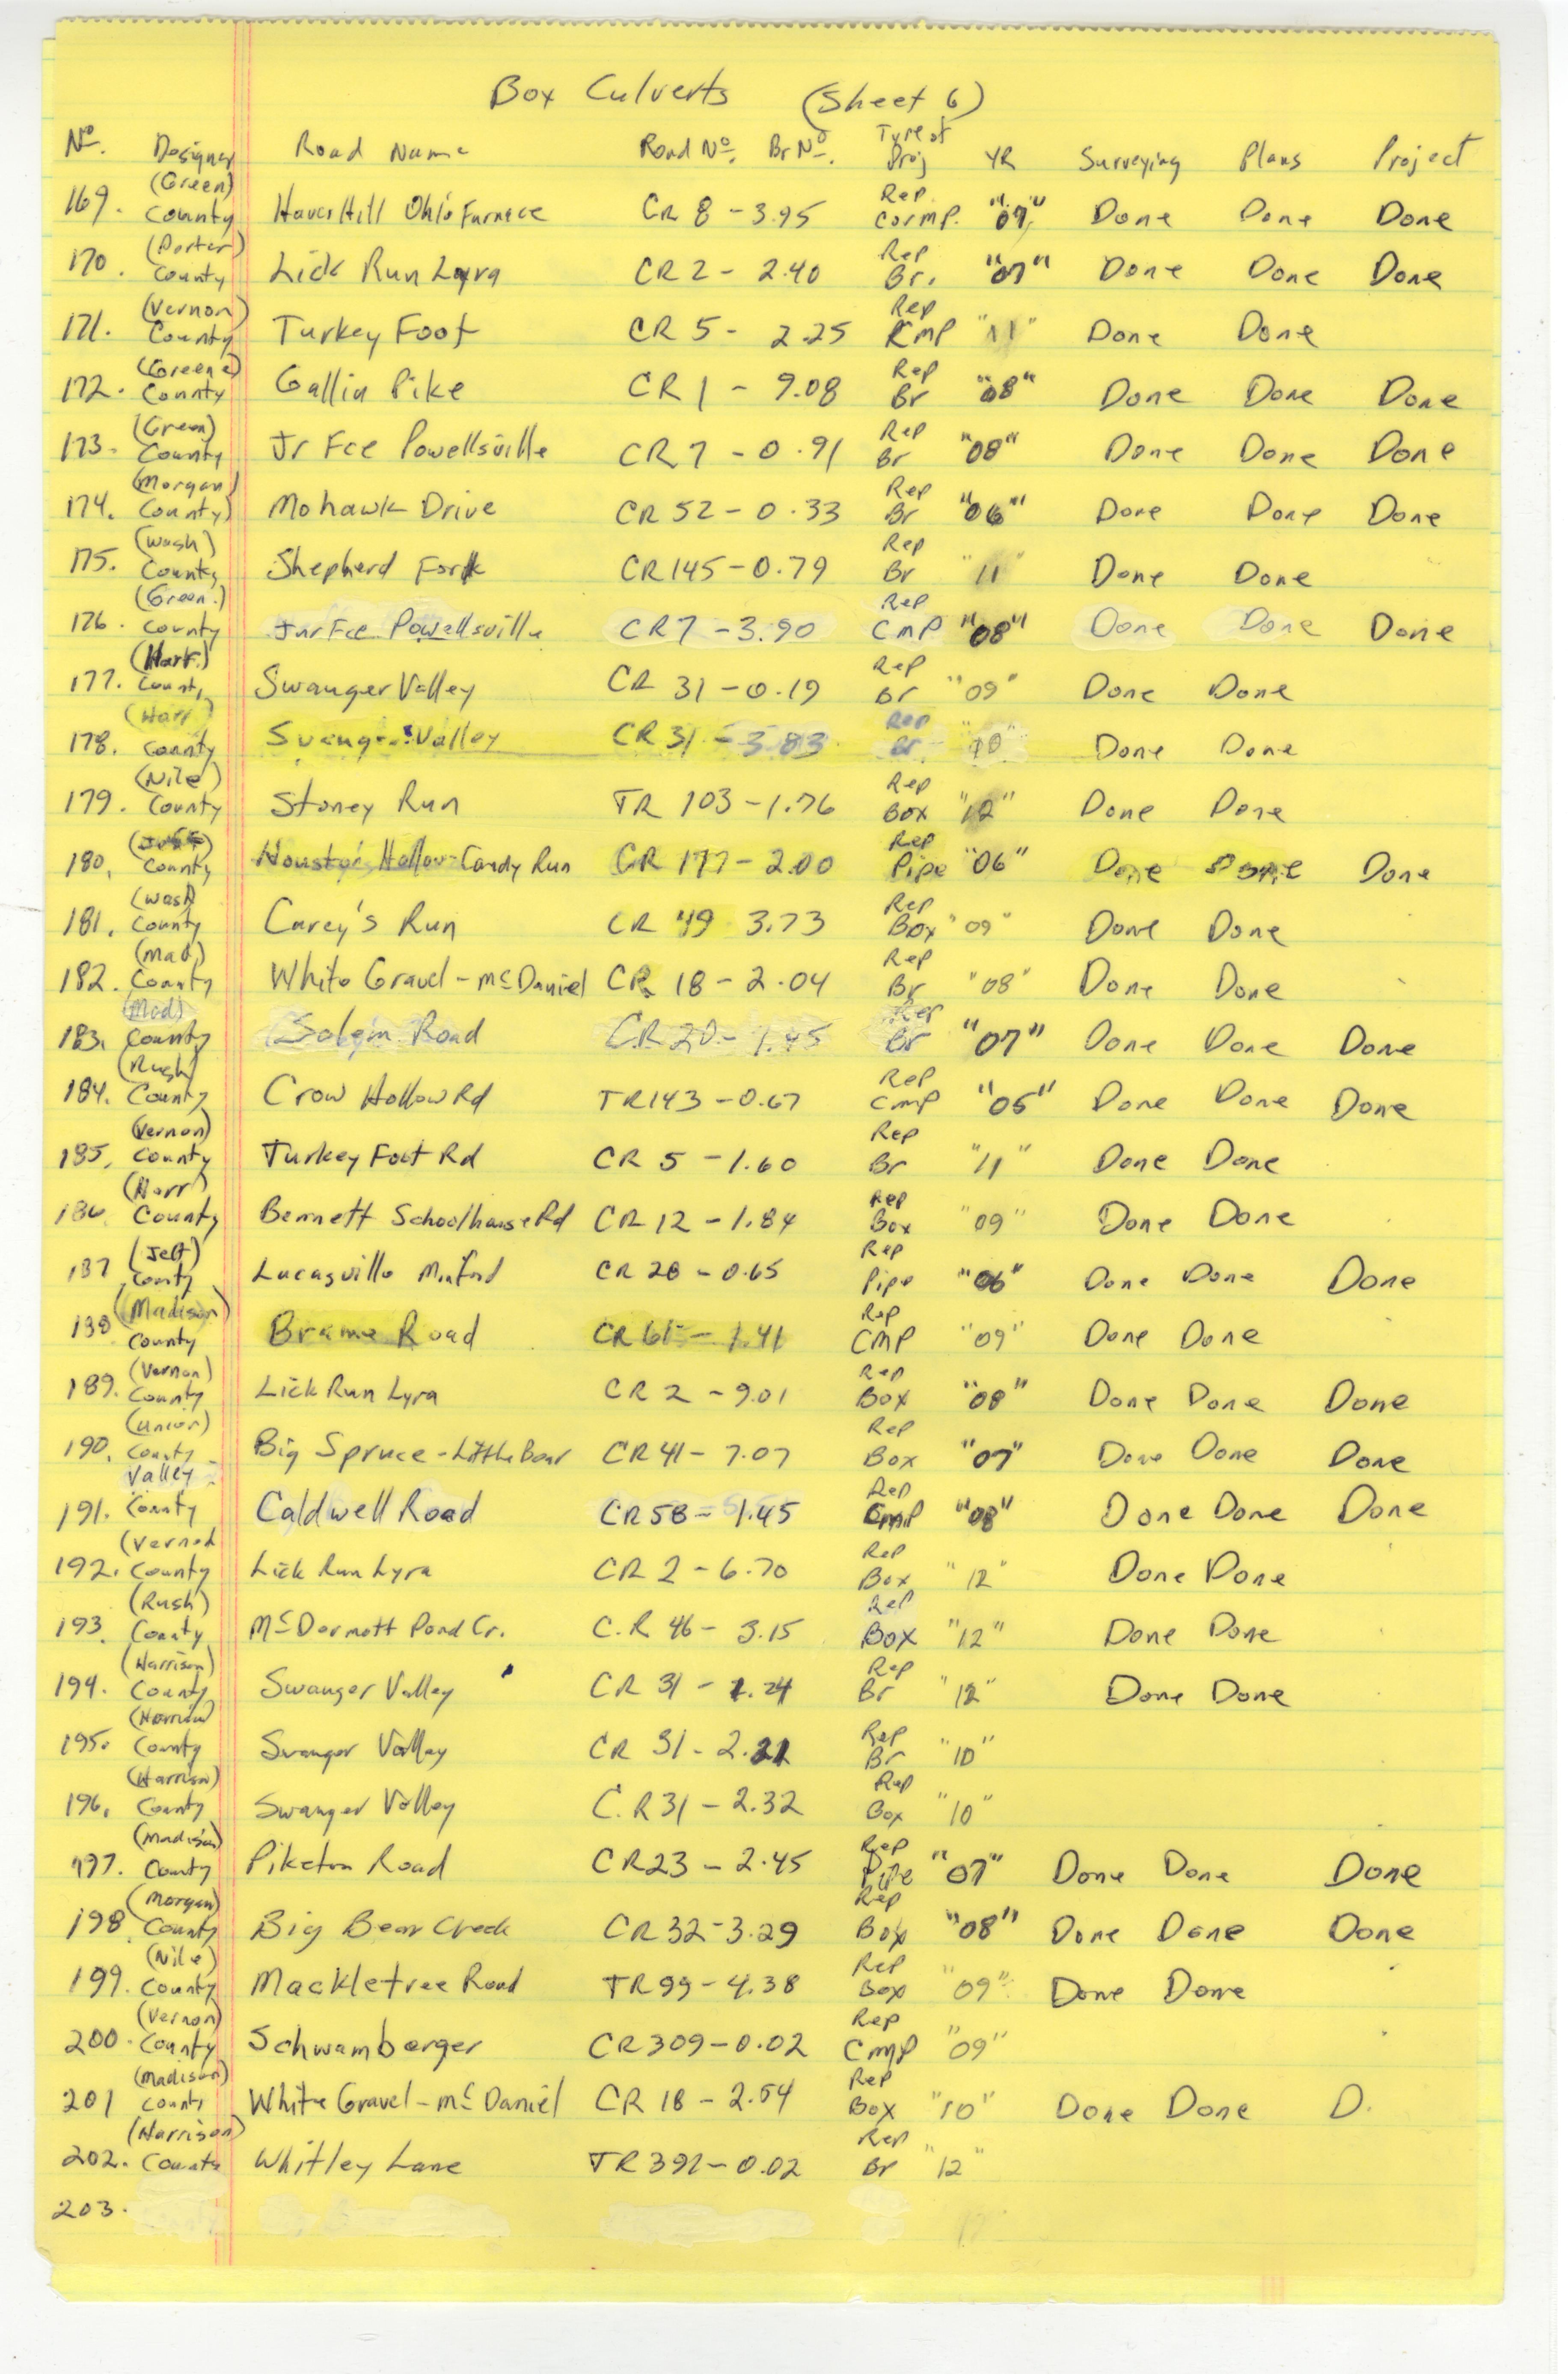 Box Culverts (Sheet 6)
Nº. Designer Road Name Road Nº. Br Nº. Type of Proj YR Surveying Plans Project
169. (Green) County Haverhill Ohio Furnace CR 8 - 3.95 Rep. CorMP. "07" Done Done Done
170. (Porter) County Lick Run Lyra CR 2 - 2.40 Rep Br. "07" Done Done Done
171. (Vernon) County Turkey Foot CR 5 - 2.25 Rep CMP "11" Done Done
172. (Greene) County Gallia Pike CR 1 - 9.08 Rep Br "08" Done Done Done
173. (Green) County Jr Fce Powellsville CR 7 - 0.91 Rep Br "08" Done Done Done
174. (Morgan) County) Mohawk Drive CR 52 - 0.33 Rep Br "06" Done Done Done
175. (Wash) County Shepherd Fork CR 145 - 0.79 Rep Br "11" Done Done
176. (Green.) County Jur Fce Powellsville CR 7 - 3.90 Rep CMP "08" Done Done Done
177. (Harr.) County Swanger Valley CR 31 - 0.19 Rep Br "09" Done Done
178. (Harr) County Swanger Valley CR 31 - 3.83 Rep Br "10" Done Done
179. (Nile) County Stoney Run TR 103 - 1.76 Rep Box "12" Done Done
180. County Houston Hollow-Candy Run CR 177 - 2.00 Rep Pipe "06" Done Done Done
181. (Wash) County Carey's Run CR 49 3.73 Rep Box "09" Done Done
182. (Mad.) County White Gravel - McDaniel CR 18 - 2.04 Rep Br "08" Done Done
183. (Mad) County Salem Road CR 20 - 1.45 Rep Br "07" Done Done Done
184. (Rush) County Crow Hollow Rd TR 143 - 0.67 Rep CMP "05" Done Done Done
185. (Vernon) County Turkey Foot Rd CR 5 - 1.60 Rep Br "11" Done Done
186 (Harr) County Bennett Schoolhouse Rd CR 12 - 1.84 Rep Box "09" Done Done
187 (Jeff) County Lucasville Minford CR 28 - 0.65 Rep Pipe "06" Done Done Done
188 (Madison) County Brame Road CR 61 - 1.41 Rep CMP "09" Done Done
189. (Vernon) County Lick Run Lyra CR 2 - 9.01 Rep Box "08" Done Done Done
190. (Union) County Big Spruce - Little Bear CR 41 - 7.07 Rep Box "07" Done Done Done
191. Valley County Caldwell Road CR 58 - 1.45 Rep CMP "08" Done Done Done
192. (Vernon County Lick Run Lyra CR 2 - 6.70 Rep Box "12" Done Done
193. (Rush) County McDermott Pond Cr. C.R 46 - 3.15 Rep Box "12" Done Done
194. (Harrison) County Swanger Valley CR 31 - 1.24 Rep Br "12" Done Done
195. (Harrison) County Swanger Valley CR 31 - 2.21 Rep Br "10"
196. (Harrison) County Swanger Valley C.R 31 - 2.32 Rep Box "10"
197. (Madison) County Piketon Road CR 23 - 2.45 Rep Pipe "07" Done Done Done
198. (Morgan) County Big Bear Creek CR 32 - 3.29 Rep Box "08" Done Done Done
199. (Nile) County Mackletree Road TR 99 - 4.38 Rep Box "09" Done Done
200. (Vernon) County Schwamberger CR 309 - 0.02 Rep CMP "09"
201 (Madison) County White Gravel - McDaniel CR 18 - 2.54 Rep Box "10" Done Done D.
202. (Harrison) County Whitley Lane TR 392 - 0.02 Rep Br "12"
203.